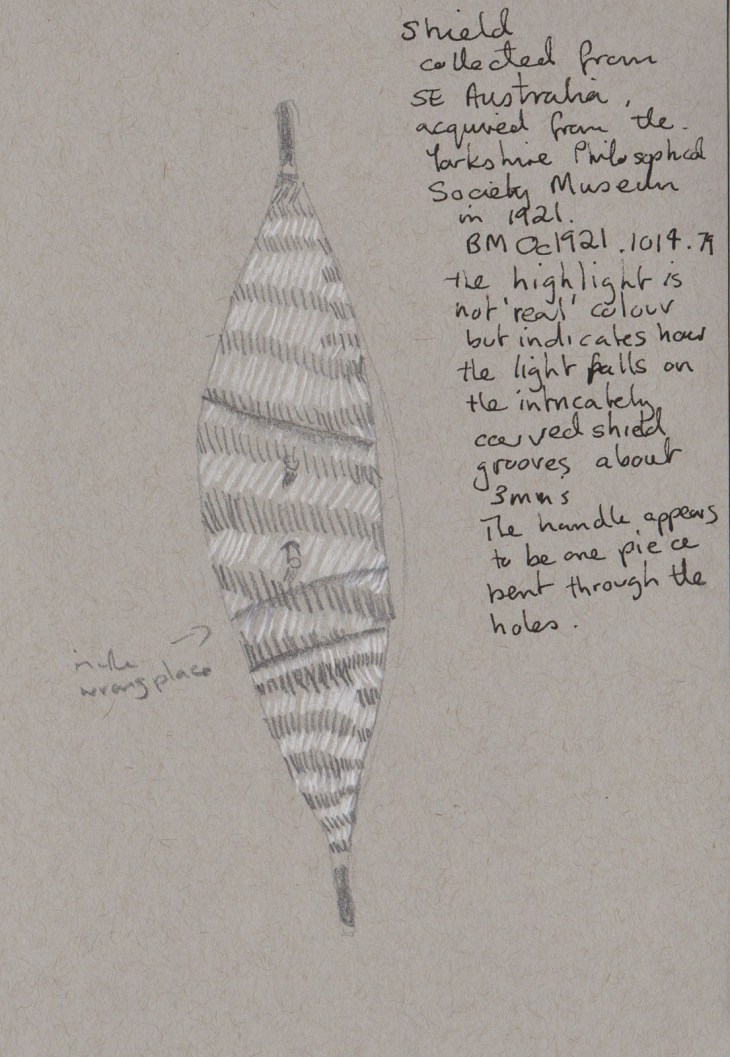 shield
collected from
SE Australia,
acquired from the
Yorkshire Philosophical
Society Museum
in 1921.
BM Oc1921.1014.79
the highlight is
not 'real' colour
but indicates how
the light falls on
the intricately
carved shield
grooves about
3mms
The handle appears
to be one piece
bent through the
holes.
in the
wrong place